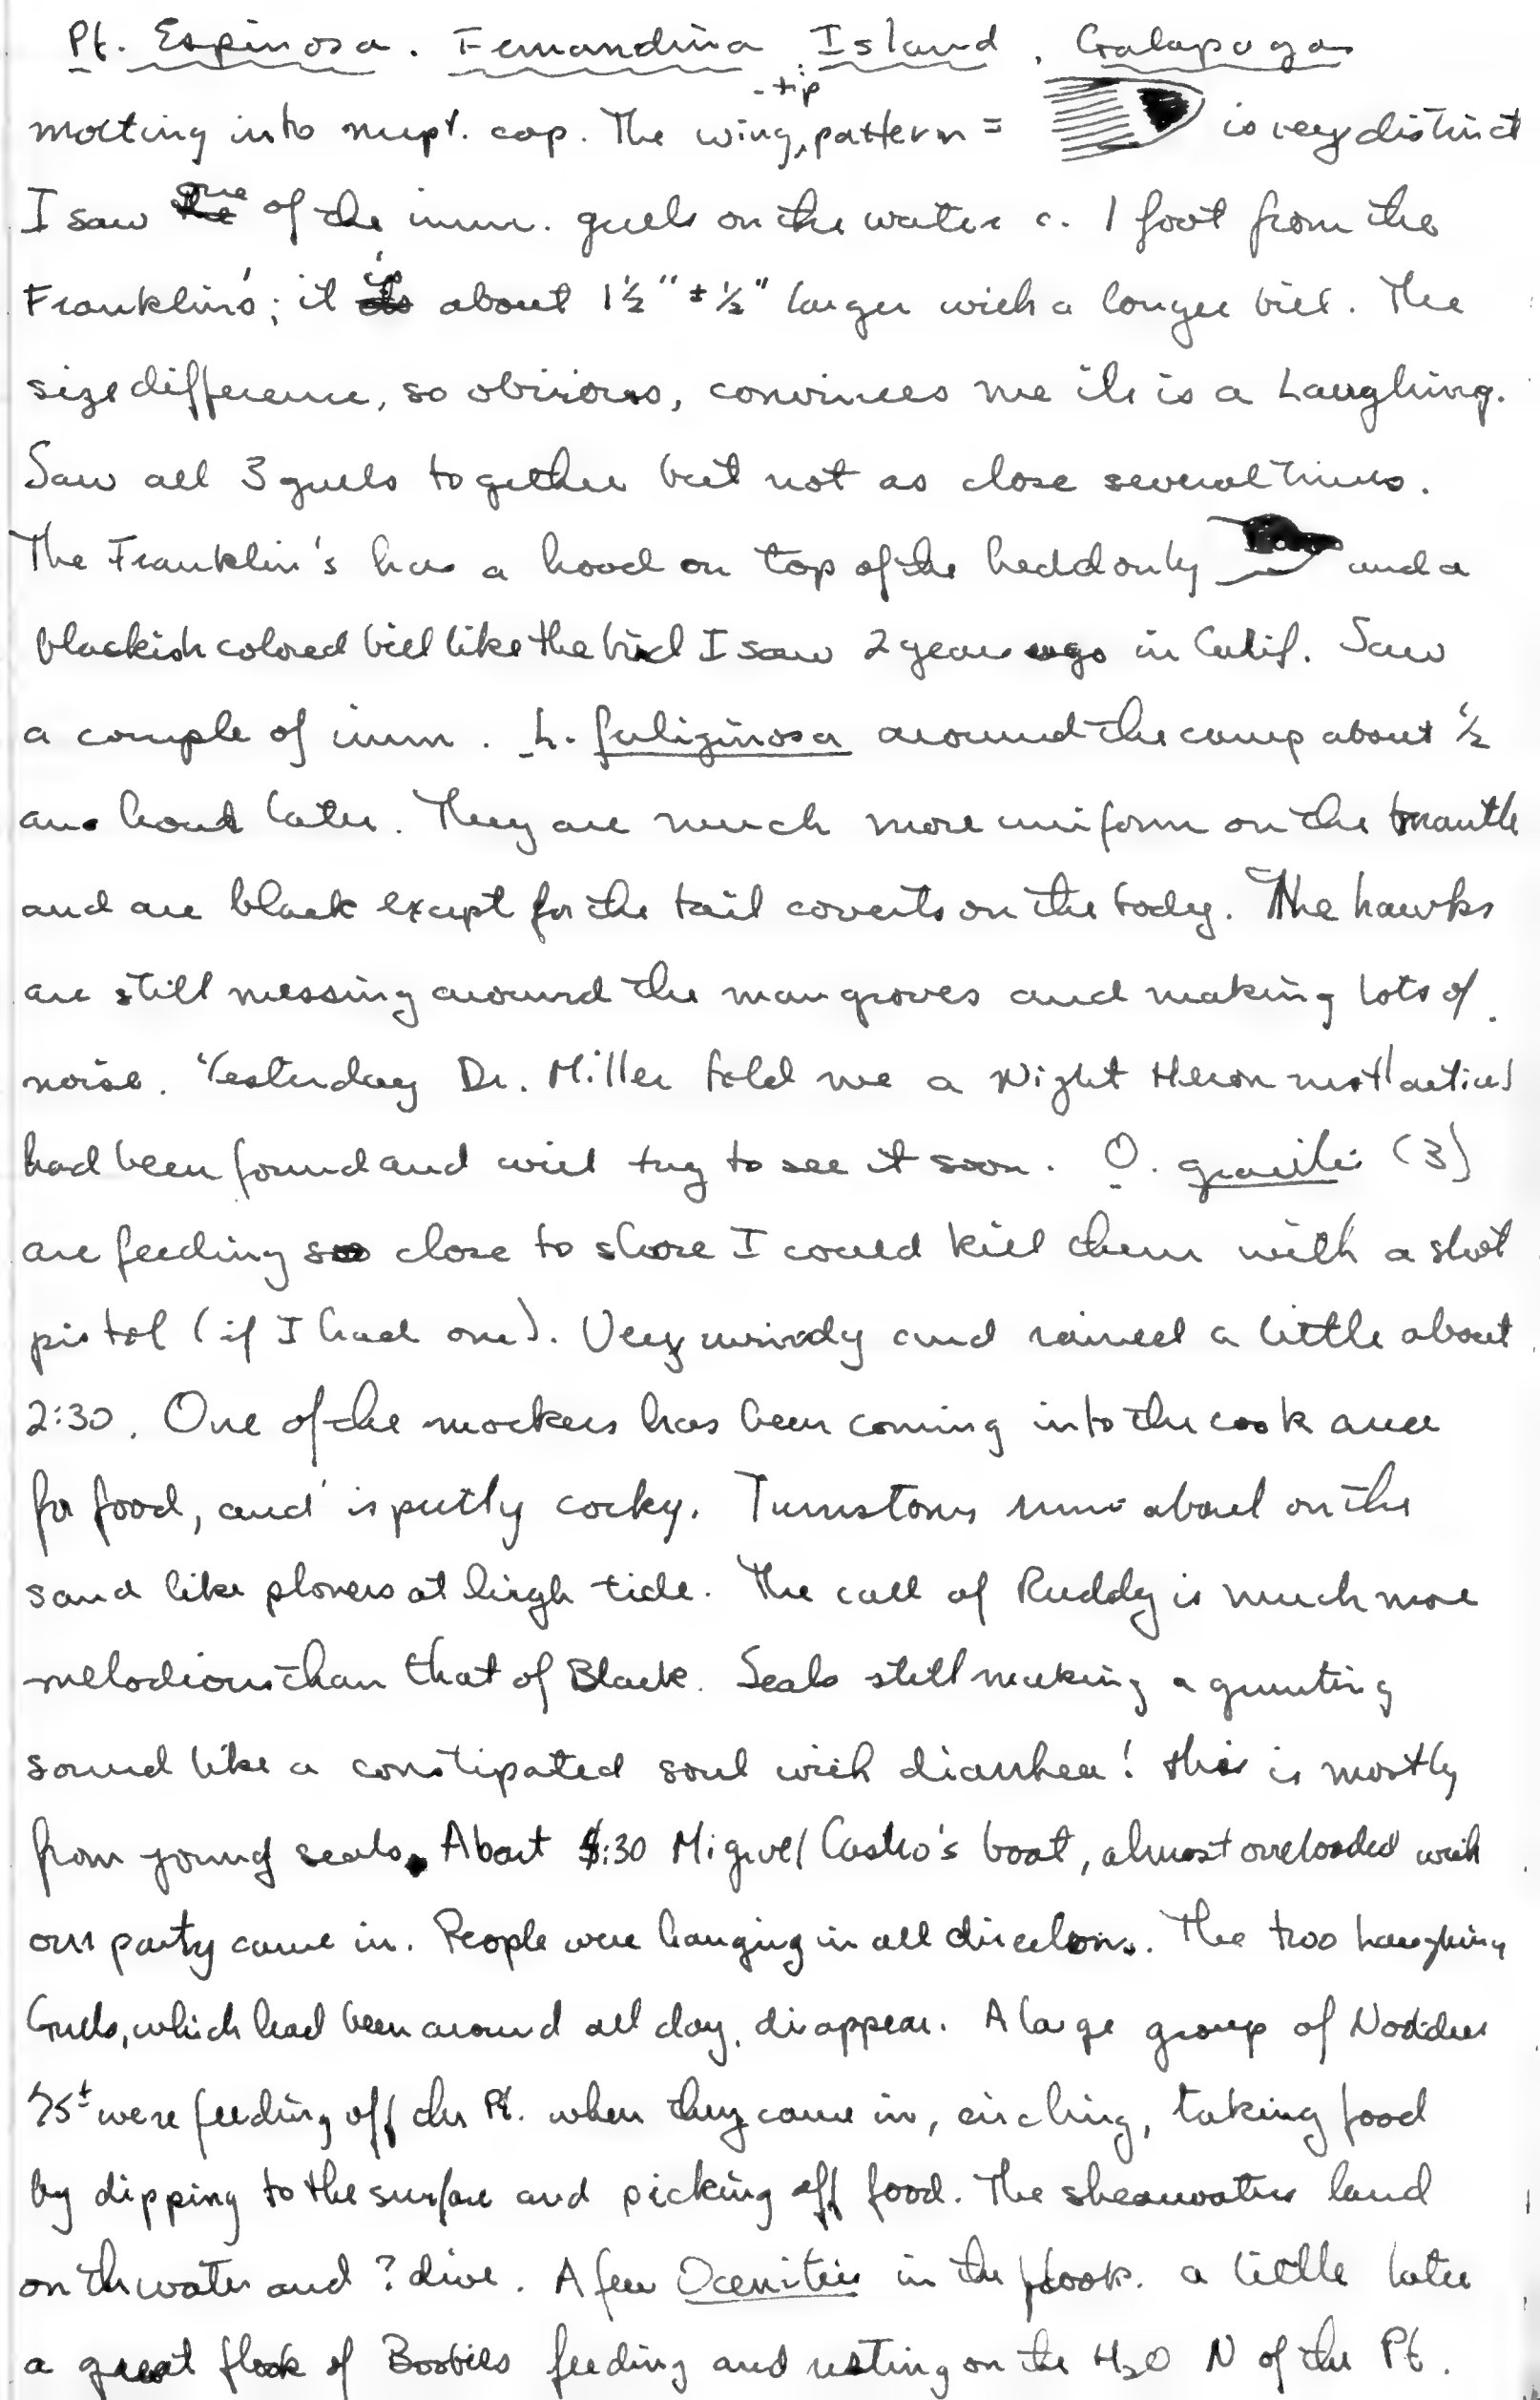 Pt. Espinosa. Fernandina Island, Galapagos
-tip
molting into nupt. cap. The wing, pattern = is very distinct
I saw one of the imm. gulls on the water c. 1 foot from the
Franklin's; it is about 1½" ± ½" larger with a longer bill. The
size difference, so obvious, convinces me it is a Laughing.
Saw all 3 gulls together but not as close several times.
The Franklin's has a hood on top of the head only and a
blackish colored bill like the bird I saw 2 years ago in Calif. Saw
a couple of imm. L. fuliginosa around the camp about ½
an hour later. They are much more uniform on the mantle
and are black except for the tail coverts on the body. The hawks
are still messing around the mangroves and making lots of
noise. Yesterday Dr. Miller told me a Night Heron nest (active)
had been found and will try to see it soon. O. gracilis (3)
are feeding so close to shore I could kill them with a shot
pistol (if I had one). Very windy and rained a little about
2:30. One of the mockers has been coming into the cook area
for food, and is pretty cocky. Turnstones run about on the
sand like plovers at high tide. The call of Ruddy is much more
melodious than that of Black. Seals still making a grunting
sound like a constipated soul with diarrhea! this is mostly
from young seals. About :30 Miguel Castro's boat, almost overloaded with
our party came in. People were hanging in all directions. The two Laughing
Gulls, which had been around all day, disappear. A large group of Noddies
75± were feeding off the Pt. when they came in, circling, taking food
by dipping to the surface and picking off food. The shearwaters land
on the water and ? dive. A few Oceanites in the flock. a little later
a great flock of Boobies feeding and resting on the H2O N of the Pt.